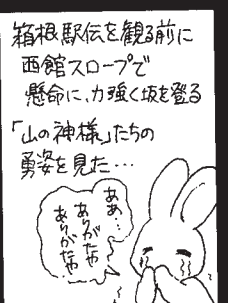 箱根駅伝を観る前に
西館スロープで
懸命に、力強く坂を登る
「山の神様」たちの
勇姿を見た…
ああ…
ありがたや
ありがたや